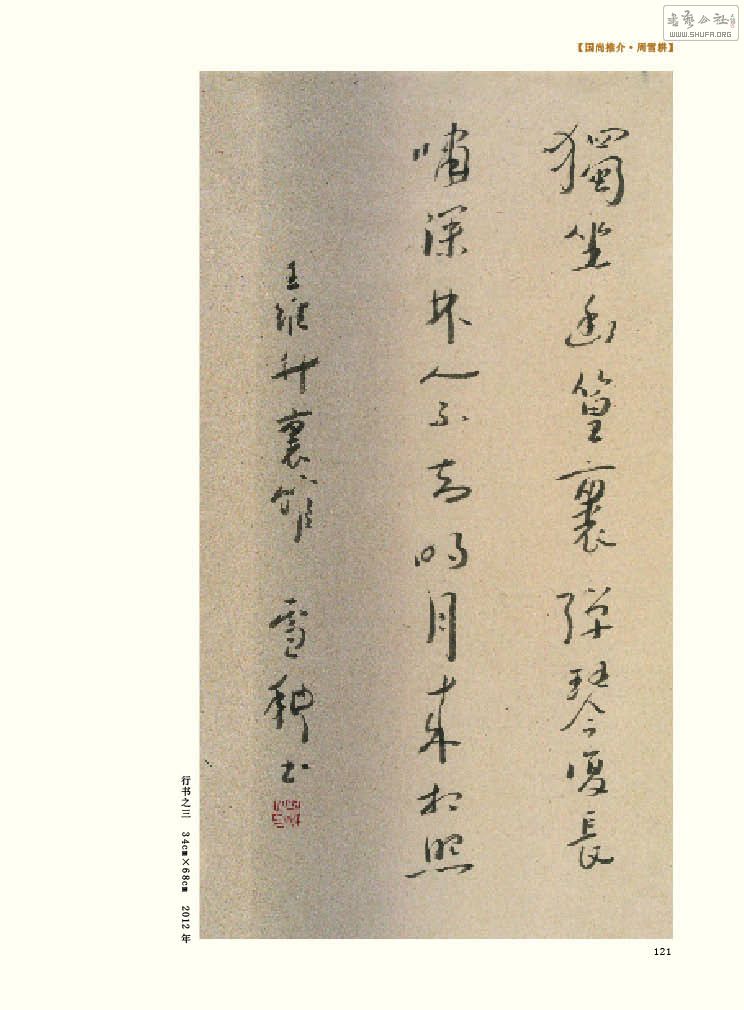 書藝公社
WWW.SHUFA.ORG
【国尚推介·周雪耕】
獨坐幽篁裏彈琴復長
嘯深林人不知明月來相照
王維竹裏館 雪耕书
行书之三 34cm×68cm 2012年
121